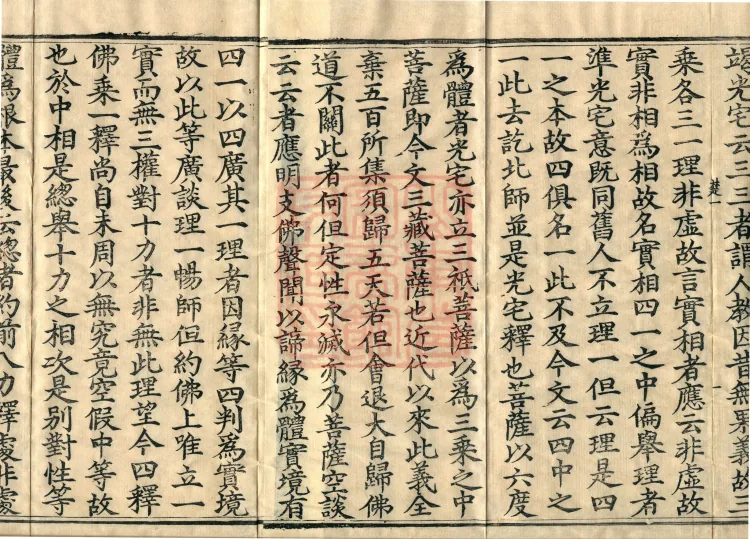 竭光宅云三三者謂人教因昔無果義故三
楚一
乘各三一理非虛故言實相者應云非虛故
實非相爲相故名實相四一之中偏舉理者
準光宅意既同舊人不立理一但云理是四
一之本故四俱名一此不及今文云四中之
一此去訖北師並是光宅釋也菩薩以六度
爲體者光宅亦立三祇菩薩以爲三乘之中
菩薩即今文三藏菩薩也近代以來此義全
棄五百所集須歸五天若但會退大自歸佛
道不關此者何但定性永滅亦乃菩薩空談
云云者應明支佛聲聞以諦緣爲體實境有
四一以四廣其一理者因緣等四判爲實境
故以此等廣談理一暢師但約佛上唯立一
實而無三權對十力者非無此理望今四釋
佛乘一釋尚自未周以無究竟空假中等故
也於中相是總舉十力之相次是別對性等
體爲根本最後云總者約前八力釋處非處